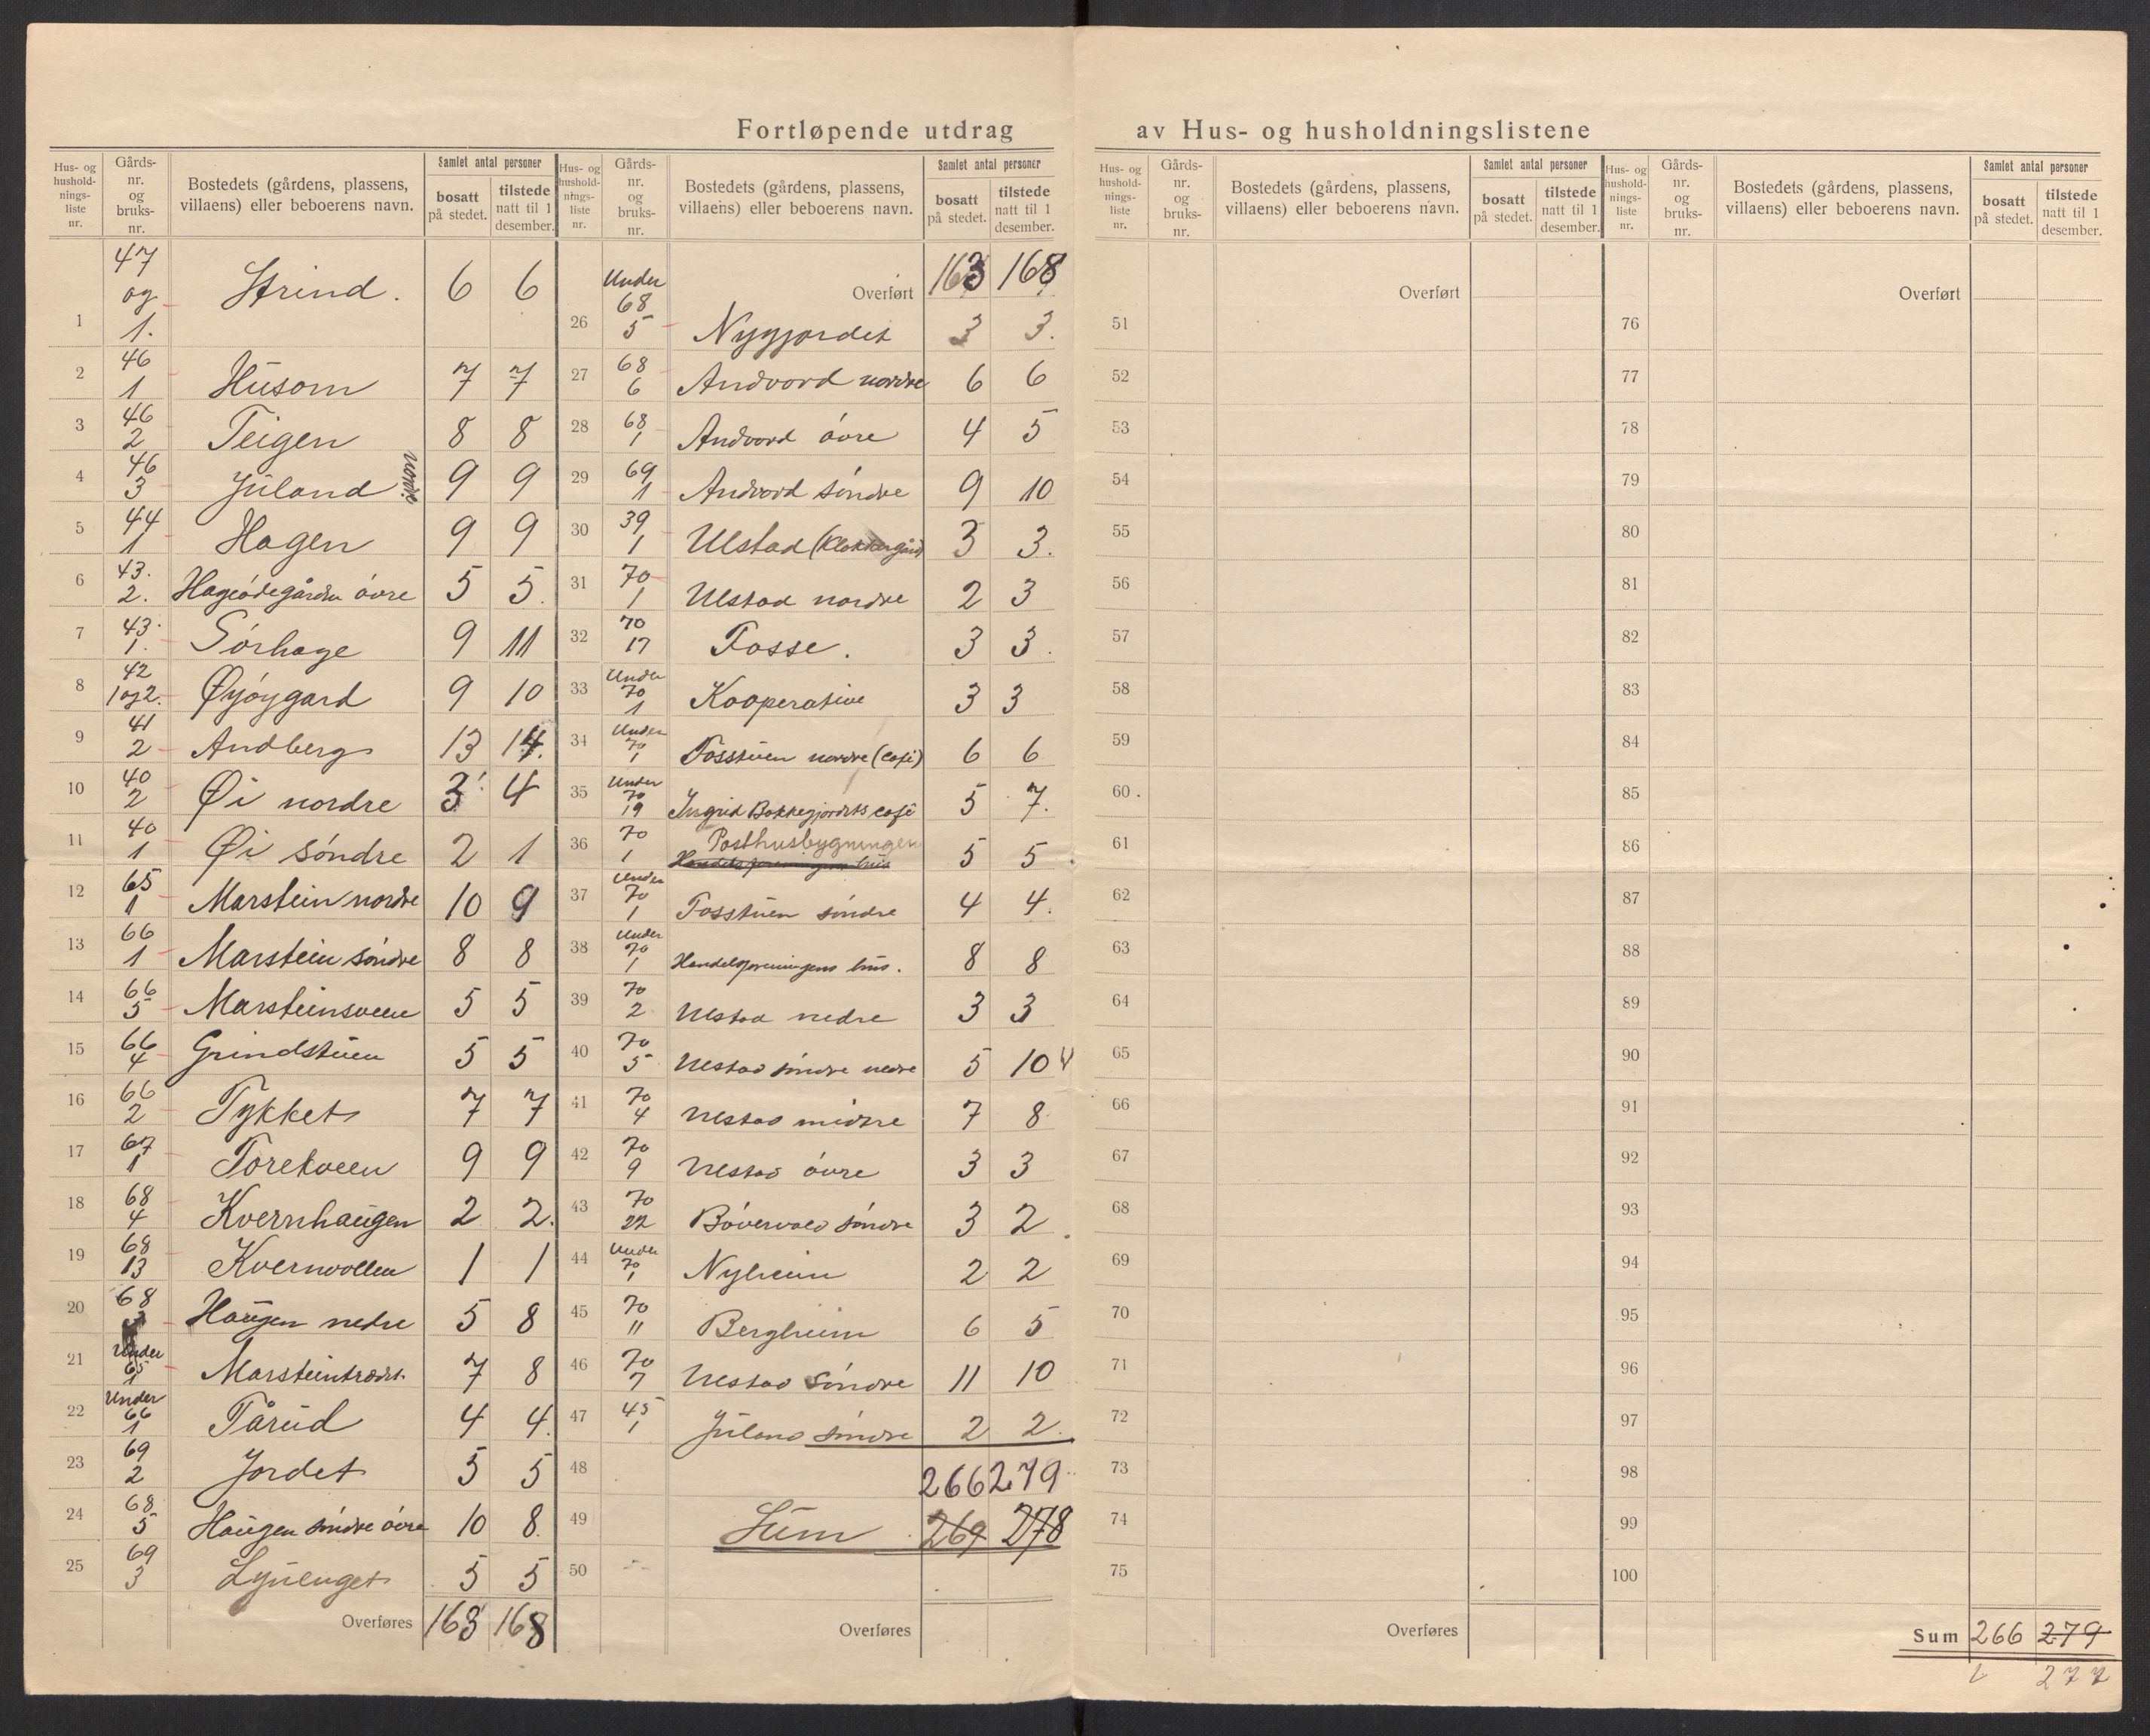 Fortløpende utdrag av Hus- og husholdningslistene
Hus- og hushold-nings-liste nr. | Gårds-nr. og bruks-nr. | Bostedets (gårdens, plassens, villaens) eller beboerens navn. | Samlet antal personer | bosatt på stedet. | tilstede natt til 1 desember.
1 | 47 og 1. | Strind. | 6 | 6
2 | 46 1 | Husom | 7 | 7
3 | 46 2 | Teigen | 8 | 8
4 | 46 3 | Juland nordre | 9 | 9
5 | 44 1 | Hagen | 9 | 9
6 | 43. 2. | Hageødegården øvre | 5 | 5.
7 | 43. 1. | Sørhage | 9 | 11
8 | 42 1 og 2. | Øyøygard | 9 | 10
9 | 41 2 | Andberg | 13 | 14.
10 | 40 2 | Øi nordre | 3 | 4
11 | 40 1 | Øi søndre | 2 | 1
12 | 65 1 | Marstein nordre | 10 | 9
13 | 66 1 | Marstein søndre | 8 | 8
14 | 66 5 | Marsteinsveen | 5 | 5
15 | 66 4 | Grindstuen | 5 | 5
16 | 66 2 | Tykket | 7 | 7
17 | 67 1 | Torekveen | 9 | 9
18 | 68 4 | Kvernhaugen | 2 | 2.
19 | 68 13 | Kvernvollen | 1 | 1
20 | 68 | Haugen nedre | 5 | 8
21 | Under 65 1 | Marsteintrædet. | 7 | 8
22 | Under 66 1 | Tårud | 4 | 4.
23 | 69 2 | Jordet | 5 | 5
24 | 68 5 | Haugen søndre øvre | 10 | 8.
25 | 69 3 | Lyuenget | 5 | 5
Overføres | 163 | 168
Hus- og hushold-nings-liste nr. | Gårds-nr. og bruks-nr. | Bostedets (gårdens, plassens, villaens) eller beboerens navn. | Samlet antal personer | bosatt på stedet. | tilstede natt til 1 desember.
Overført | 163 | 168
26 | Under 68 5 | Nygjordet | 3 | 3.
27 | 68 6 | Andvord nordre | 6 | 6
28 | 68 1 | Andvord øvre | 4 | 5
29 | 69 1 | Andvord søndre | 9 | 10
30 | 39 1 | Ulstad (Klokkergård) | 3 | 3.
31 | 70 1 | Ulstad nordre | 2 | 3
32 | 70 17 | Fosse. | 3 | 3.
33 | Under 70 1 | Kooperative | 3 | 3
34 | Under 70 1 | Fosstuen nordre (café) | 6 | 6
35 | Under 70 19 | Ingrid Bakkegjordets café | 5 | 7.
36 | 70 1 | Posthusbygningen Handelsforeningens hus | 5 | 5.
37 | Under 70 1 | Fosstuen søndre | 4 | 4.
38 | Under 70 1 | Handelsforeningens hus. | 8 | 8
39 | 70 2 | Ulstad nedre | 3 | 3
40 | 70 5 | Ulstad søndre nedre | 5 | 10 V
41 | 70 4 | Ulstad midtre | 7 | 8
42 | 70 9 | Ulstad øvre | 3 | 3
43 | 70 22 | Bøvervold søndre | 3 | 2.
44 | Under 70 1 | Nyheim | 2 | 2
45 | 70 11 | Bergheim | 6 | 5
46 | 70 7 | Ulstad søndre | 11 | 10
47 | 45 1 | Juland søndre | 2 | 2.
48 | 266 | 279
49 | Sum | 269 | 278
50
Overføres
Hus- og hushold-nings-liste nr. | Gårds-nr. og bruks-nr. | Bostedets (gårdens, plassens, villaens) eller beboerens navn. | Samlet antal personer | bosatt på stedet. | tilstede natt til 1 desember.
Overført
51
52
53
54
55
56
57
58
59
60
61
62
63
64
65
66
67
68
69
70
71
72
73
74
75
Overføres
Hus- og hushold-nings-liste nr. | Gårds-nr. og bruks-nr. | Bostedets (gårdens, plassens, villaens) eller beboerens navn. | Samlet antal personer | bosatt på stedet. | tilstede natt til 1 desember.
Overført
76
77
78
79
80
81
82
83
84
85
86
87
88
89
90
91
92
93
94
95
96
97
98
99
100
Sum | 266 | 279
277